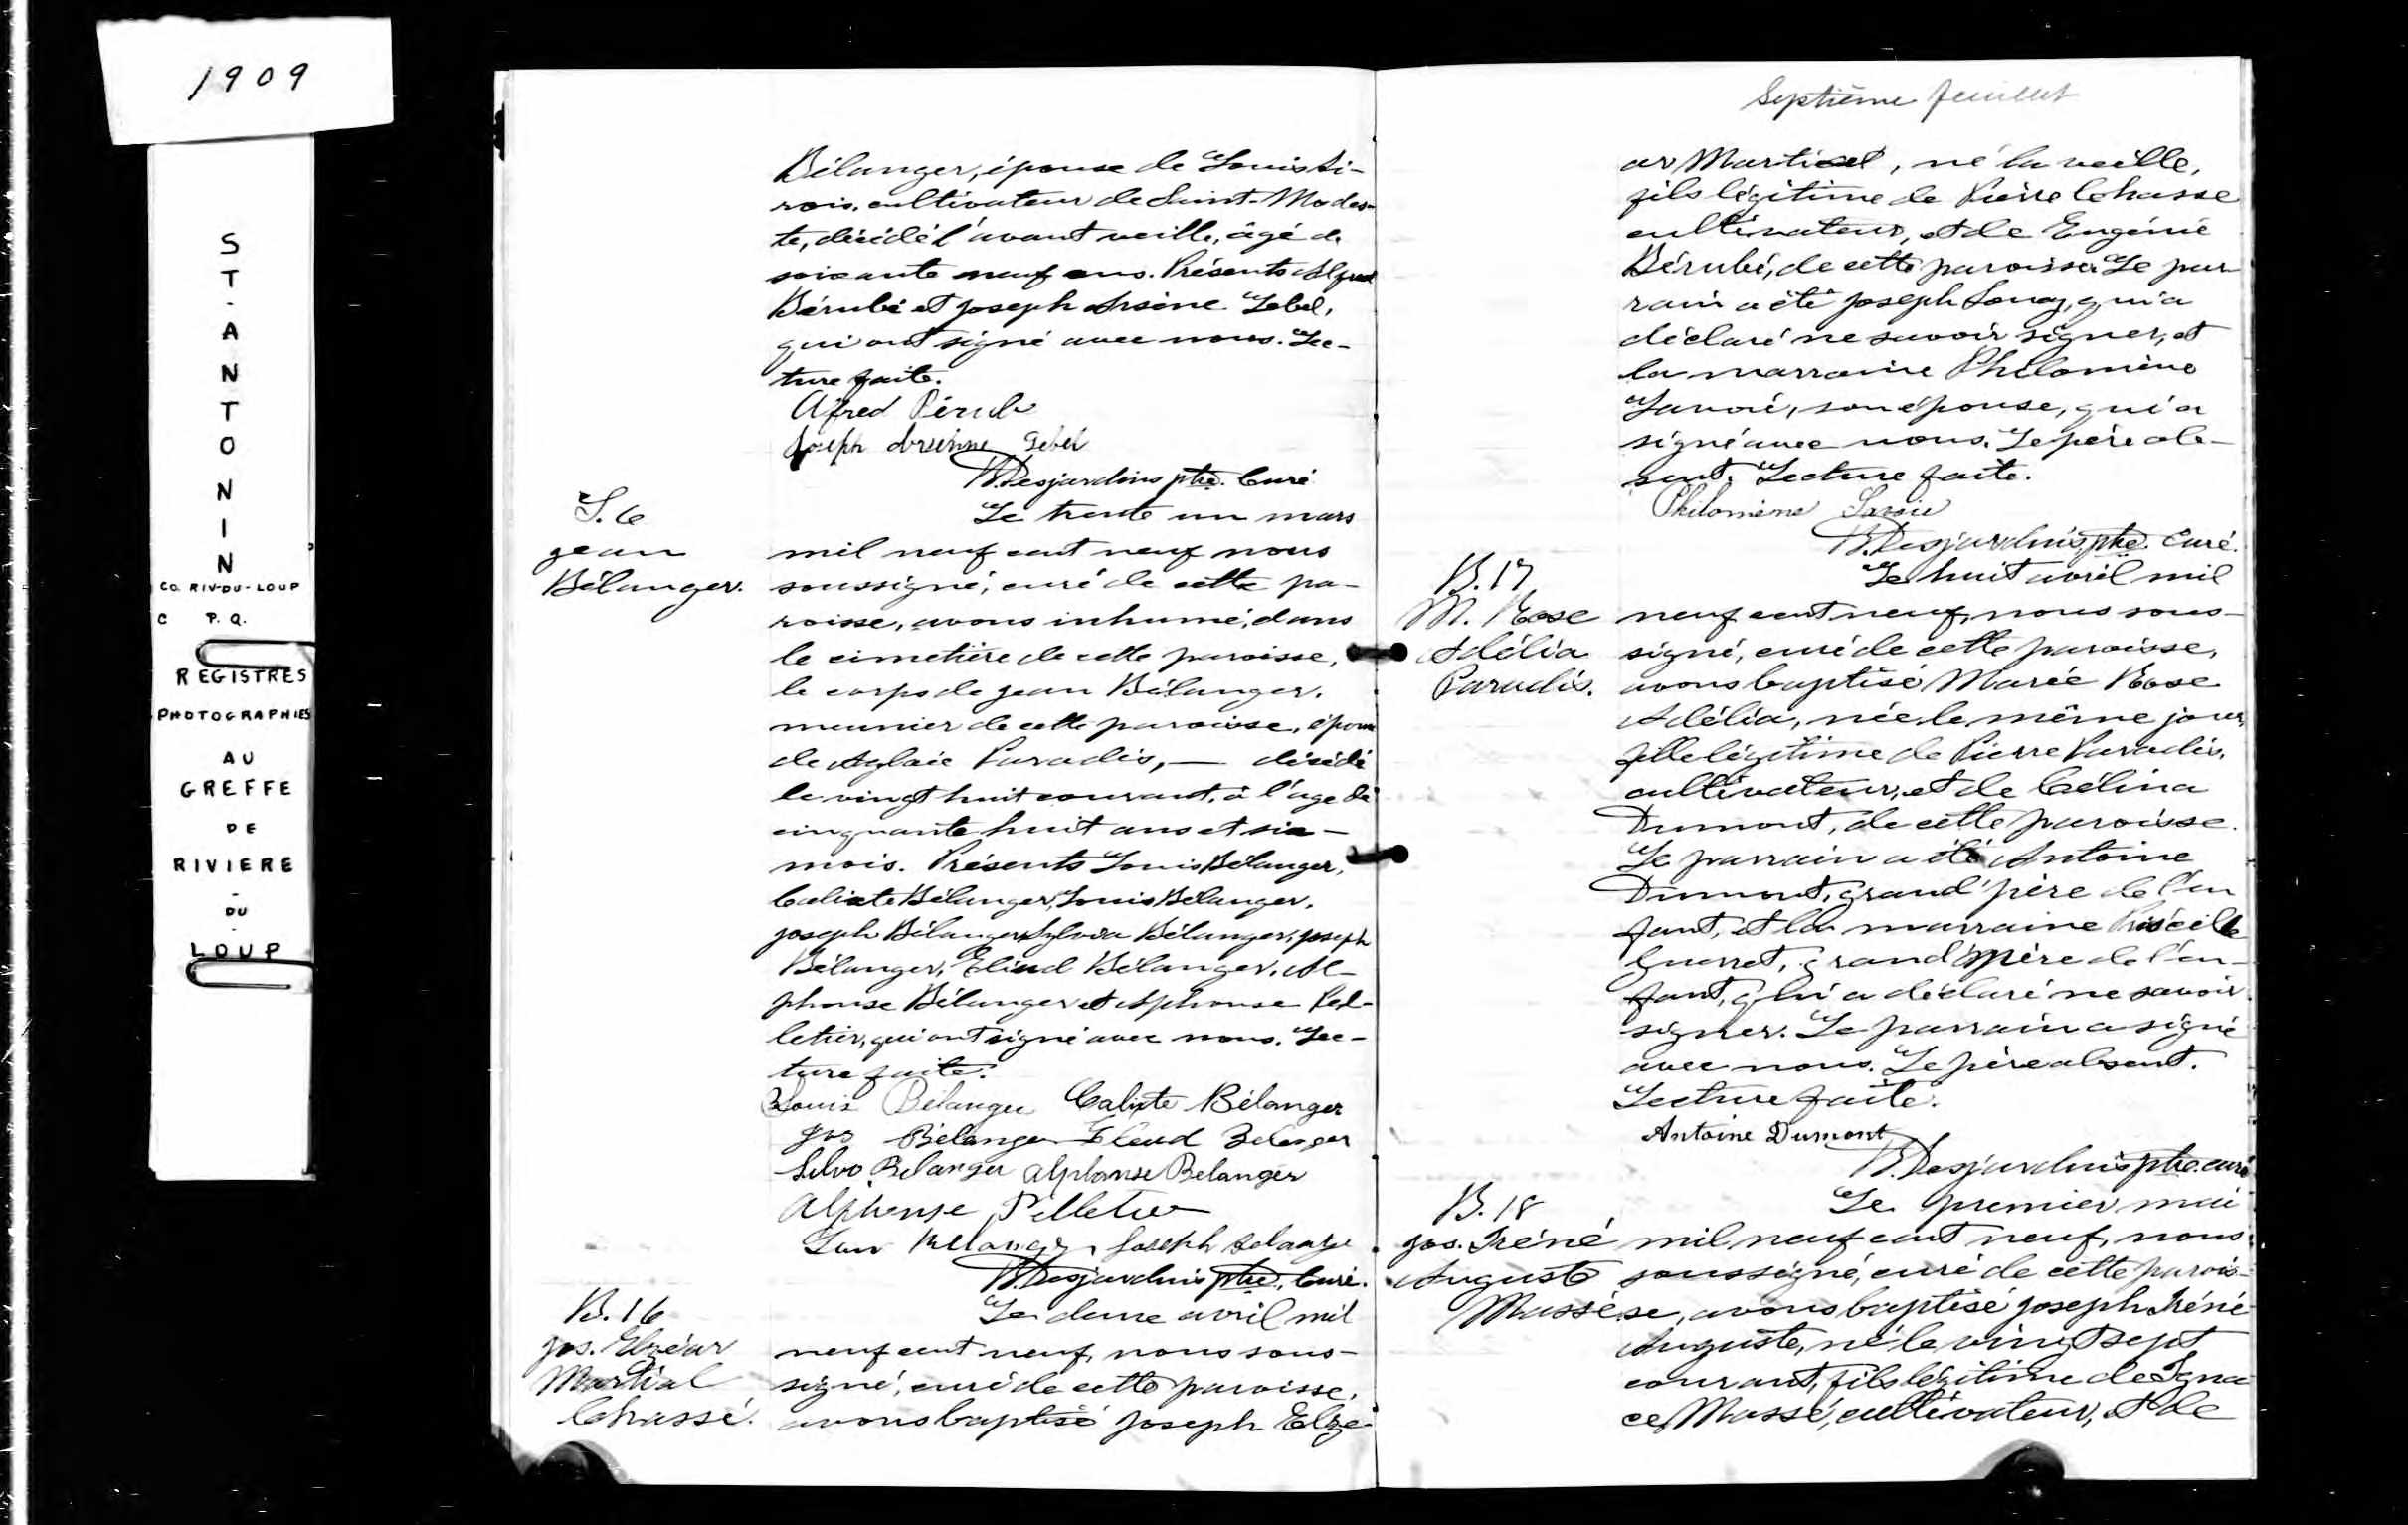 1909
ST-ANTONIN
CO. RIV-DU-LOUP
C P.Q.
REGISTRES
PHOTOGRAPHIES
AU
GREFFE
DE
RIVIERE
-
DU
-
LOUP
Bélanger, épouse de Louis Si-
rois, cultivateur de Saint-Modes-
te, décédé l'avant veille, âgé de
soixante neuf ans. Présents Alfred
Bérubé et Joseph Arsène Lebel,
qui ont signé avec nous. Lec-
ture faite.
Alfred Bérubé
Joseph Arsenne Lebel
Desjardins ptre. Curé
S. 6
Jean
Bélanger.
Le trente un mars
mil neuf cent neuf nous
soussigné, curé de cette pa-
roisse, avons inhumé, dans
le cimetière de cette paroisse,
le corps de Jean Bélanger,
meunier de cette paroisse, époux
de Aglaie Paradis, — décédé
le vingt huit courant, à l'age de
cinquante huit ans et six —
mois. Présents Louis Bélanger,
Calixte Bélanger, Louis Bélanger,
Joseph Bélanger, Sylva Bélanger, Joseph
Bélanger, Eliud Bélanger, Al-
phonse Bélanger et Alphonse Pel-
letier, qui ont signé avec nous. Lec-
ture faite.
Louis Bélanger Calixte Bélanger
Jos Bélanger Eleud Belanger
Silvo Belanger Alphonse Belanger
Alphonse Pelletier
Belanger Joseph Belanger
Desjardins ptre. Curé.
B. 16
Jos. Elzéar
Martial
Chassé.
Le deux avril mil
neuf cent neuf, nous sous-
signé, curé de cette paroisse,
avons baptisé Joseph Elzé-
Septième feuillet
ar Martial, né la veille,
fils légitime de Pierre Chasse
cultivateur, et de Eugénie
Bérubé, de cette paroisse. Le par
rain a été Joseph Soucy, qui a
déclaré ne savoir signer, et
la marraine Philomène
Savoié, son épouse, qui a
signé avec nous. Le père ab-
sent. Lecture faite.
Philomène Savoie
Desjardins ptre. Curé.
B. 17
M. Rose
Adélia
Paradis.
Le huit avril mil
neuf cent neuf, nous sous-
signé, curé de cette paroisse,
avons baptisé Marie Rose
Adélia, née le même jour,
fille légitime de Pierre Paradis,
cultivateur, et de Célina
Dumont, de cette paroisse.
Le parrain a été Antoine
Dumont, grand'père de l'en
fant, et la marraine Priscille
Guerret, grand'mère de l'en-
fant, qui a déclaré ne savoir
signer. Le parrain a signé
avec nous. Le père absent.
Lecture faite.
Antoine Dumont
Desjardins ptre. curé
B. 18
Jos. Iréné
Auguste
Massé
Le premier mai
mil neuf cent neuf, nous
soussigné, curé de cette parois-
se, avons baptisé Joseph Iréné
Auguste, né le vingt sept
courant, fils légitime de Igna
ce Massé, cultivateur, et de